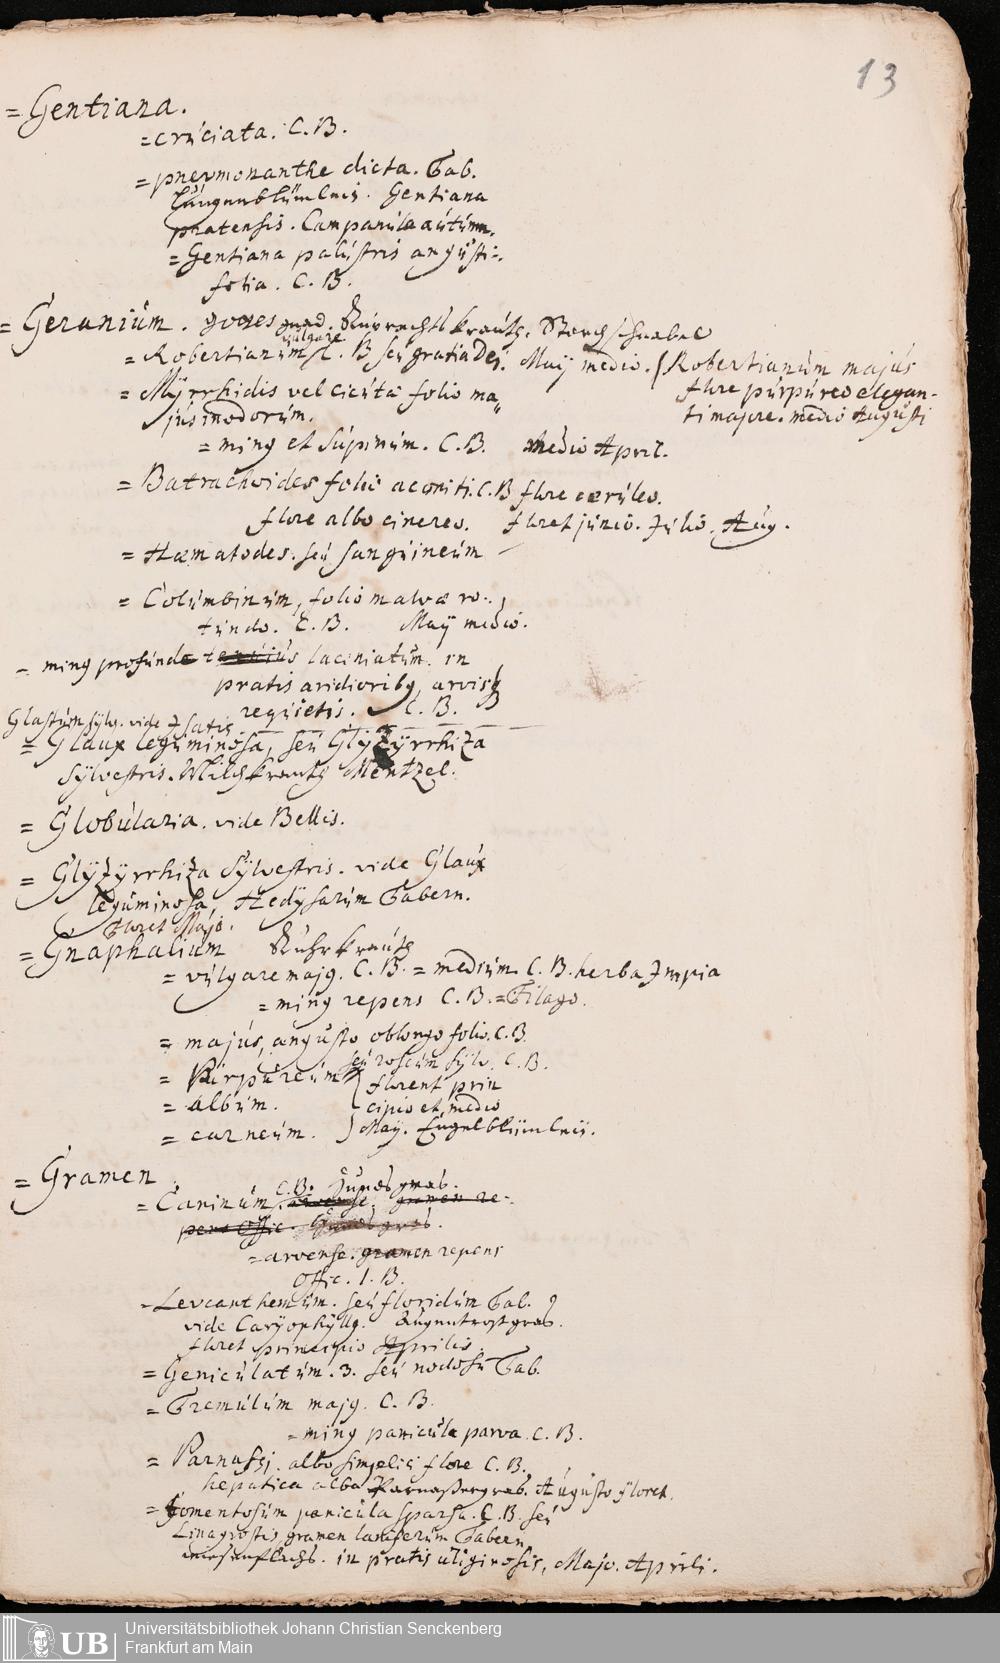 13
= Gentiana.
= crúciata. C. B.
= pnevmonanthe dicta. Tab.
Lúngenblümleis. Gentiana
pratensis. Campanúla aútúmn.
= Gentiana palústris angústi=
folia. C. B.
= Geraniúm. Rúprechtskraútz. Storchschnabel
vúlgare
= Robertianúm C. B seú gratia Dei. Maÿ medio. (Robertianúm majús
flore púrpúreo elegan-
ti majore. medio Aúgústi
= Mÿrrhidis vel cicútæ folio ma
jús inodorúm.
= ming et súpinúm. C. B. medio April.
= Batrachoides folio aconiti. C. B flore cærúleo.
flore albo cinereo. floret júnio. Júlio. Aúg.
= Hæmatodes. seú sangúineúm
= Colúmbinúm, folio malvæ ro=
túndo. C. B. Maÿ medio.
= ming profúnde laciniatúm. in
pratis aridioribg, arvisq
reqúietis. C. B.
Glastúm sÿlv. vide Isatis
= Glaux legúminosa, seú Glÿzÿrrhiza
sÿlvestris. Wildskraútz Mentzel.
= Globúlaria. vide Bellis.
= Glÿzÿrrhiza Sÿlvestris. vide Glaúx
legúminosa, Hedÿsarúm Tabern.
Floret Majo.
= Gnaphaliúm Rúhrkraútz
= vúlgare majg. C. B. = mediúm C. B. herba Impia
= ming repens C. B. = Filago.
= majús, angústo oblongo folio. C. B.
seú roseúm sÿlv. C. B.
= Púrpúreúm florent prin
= albúm. cipio et medio
= carneúm. Maÿ. Engelblümleis.
= Gramen
C. B. Húndsgras.
= Caninúm, arvense. gramen re-
pens Offic. Húndsgras.
= arvense. gramen repens
Offic. I. B.
= Levcanthemúm. seú floridúm Tab.
vide Carÿophÿllg. Aúgentrostgras.
floret principio Aprilis.
= Genicúlatúm. 3. seú nodosú Tab.
= Tremúlúm majg. C. B.
= ming panicúla parva. C. B.
= Parnassi. albo simplici flore C. B.
hepatica alba Parnaßergras. Aúgústo floret.
= tomentosúm panicúla sparsa. C. B. seú
Linagrostis gramen laniferúm Tabern
wiesenflachs. in pratis úliginosis, Majo. Aprili.
UB
Universitätsbibliothek Johann Christian Senckenberg
Frankfurt am Main